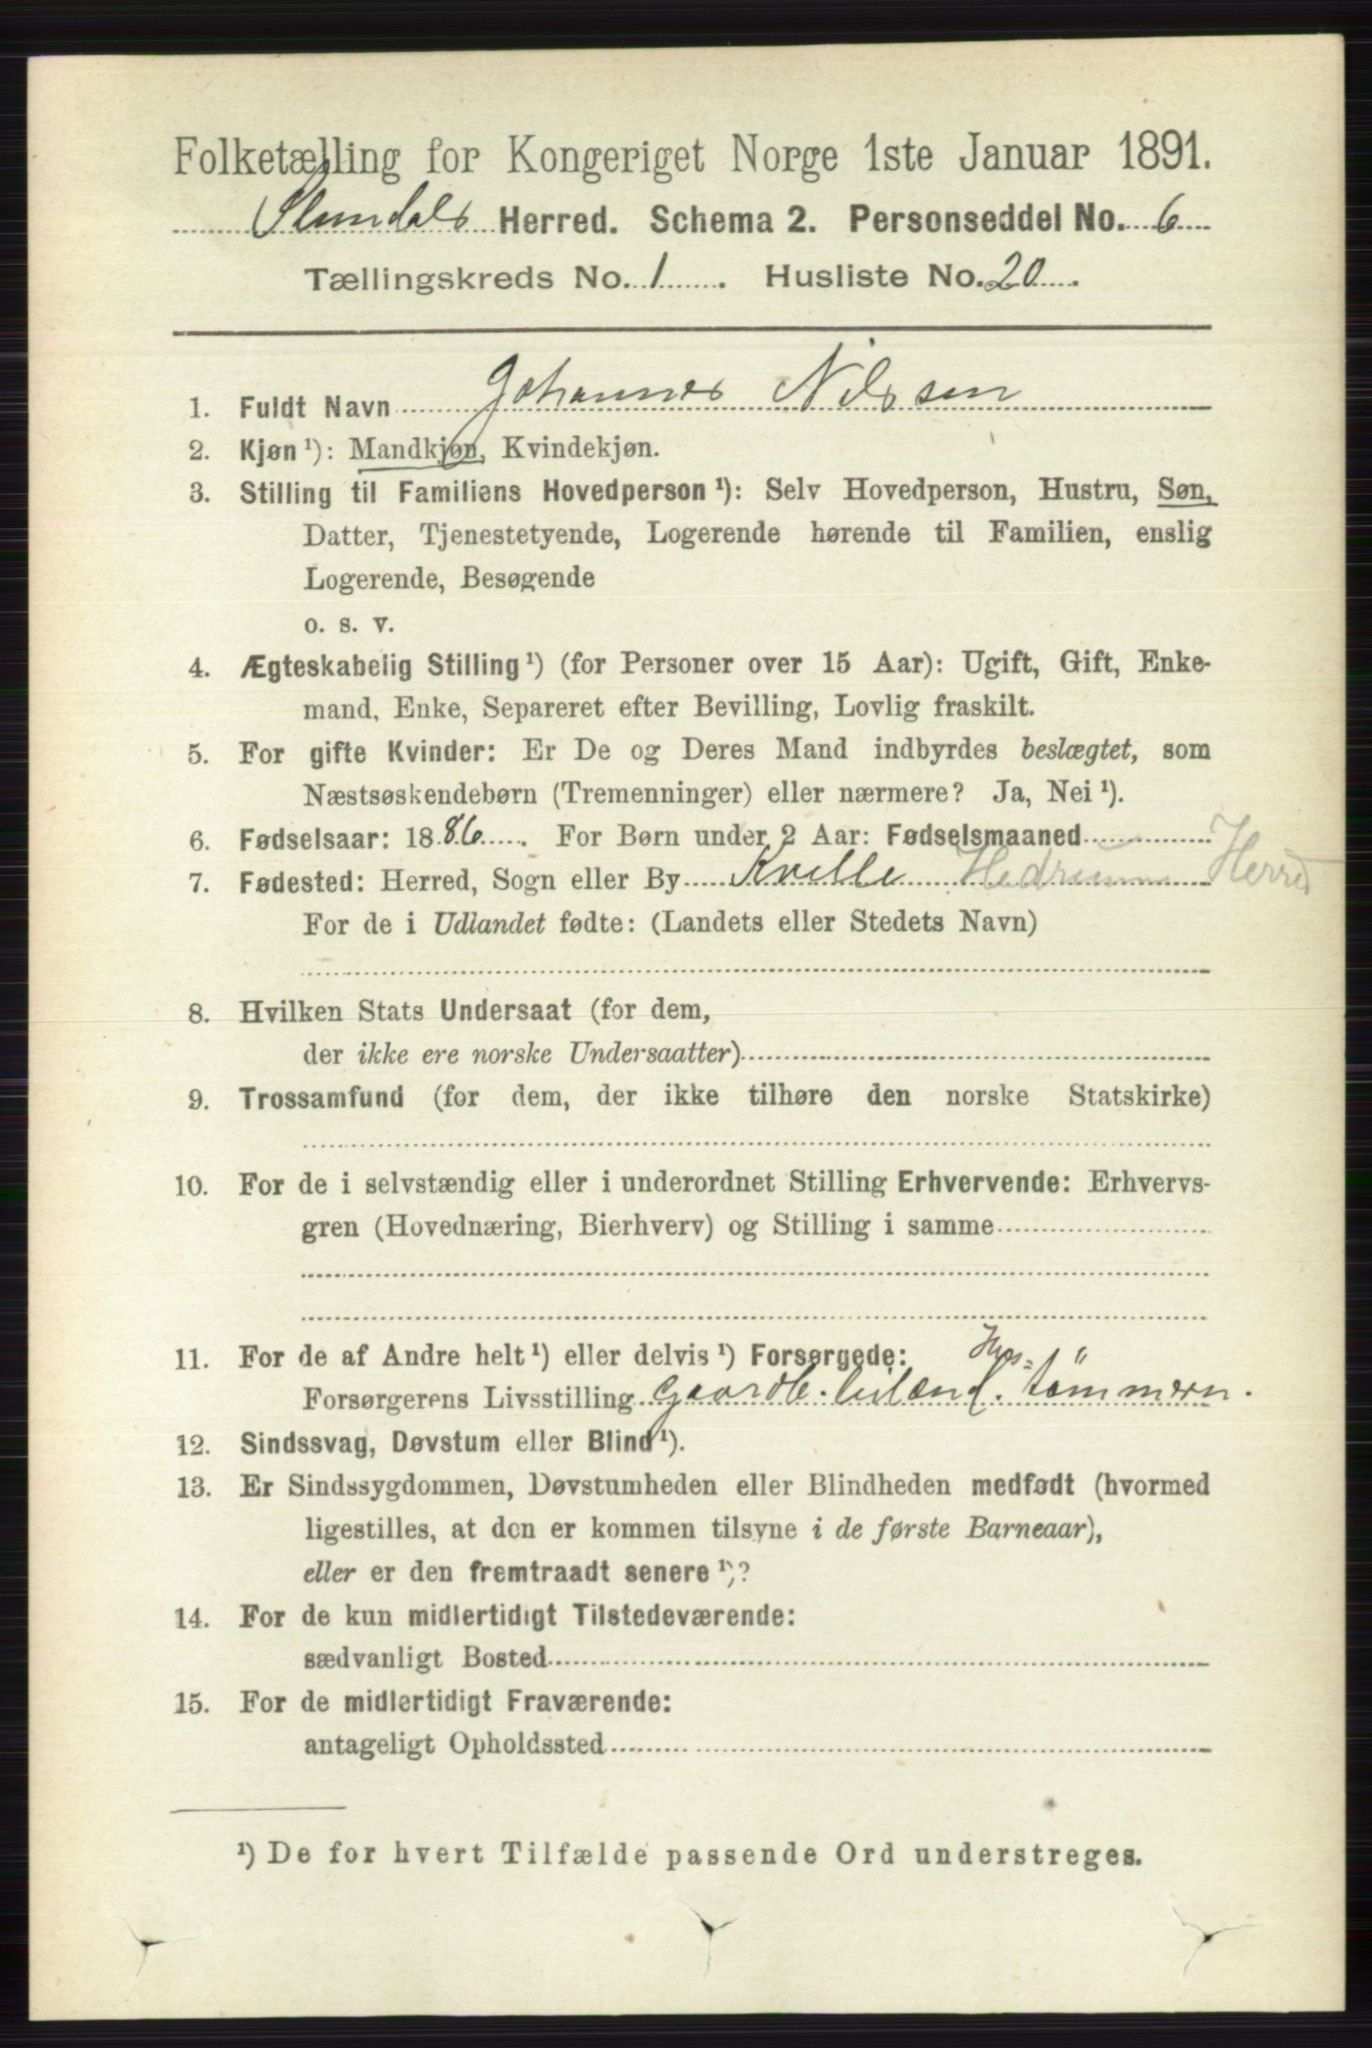 Folketælling for Kongeriget Norge 1ste Januar 1891.
Slemdals Herred. Schema 2. Personseddel No. 6
Tællingskreds No. 1. Husliste No. 20.
1. Fuldt Navn Johannes Nilssen
2. Kjøn ¹): Mandkjøn, Kvindekjøn.
3. Stilling til Familiens Hovedperson ¹): Selv Hovedperson, Hustru, Søn,
Datter, Tjenestetyende, Logerende hørende til Familien, enslig
Logerende, Besøgende
o. s. v.
4. Ægteskabelig Stilling ¹) (for Personer over 15 Aar): Ugift, Gift, Enke-
mand, Enke, Separeret efter Bevilling, Lovlig fraskilt.
5. For gifte Kvinder: Er De og Deres Mand indbyrdes beslægtet, som
Næstsøskendebørn (Tremenninger) eller nærmere? Ja, Nei ¹).
6. Fødselsaar: 1886. For Børn under 2 Aar: Fødselsmaaned
7. Fødested: Herred, Sogn eller By Kvelle Hedrum Herred
For de i Udlandet fødte: (Landets eller Stedets Navn)
8. Hvilken Stats Undersaat (for dem,
der ikke ere norske Undersaatter)
9. Trossamfund (for dem, der ikke tilhøre den norske Statskirke)
10. For de i selvstændig eller i underordnet Stilling Erhvervende: Erhvervs-
gren (Hovednæring, Bierhverv) og Stilling i samme
11. For de af Andre helt ¹) eller delvis ¹) Forsørgede:
Forsørgerens Livsstilling Gaardb. tömmerm.
12. Sindssvag, Døvstum eller Blind ¹).
13. Er Sindssygdommen, Døvstumheden eller Blindheden medfødt (hvormed
ligestilles, at den er kommen tilsyne i de første Barneaar),
eller er den fremtraadt senere ¹)?
14. For de kun midlertidigt Tilstedeværende:
sædvanligt Bosted
15. For de midlertidigt Fraværende:
antageligt Opholdssted
¹) De for hvert Tilfælde passende Ord understreges.